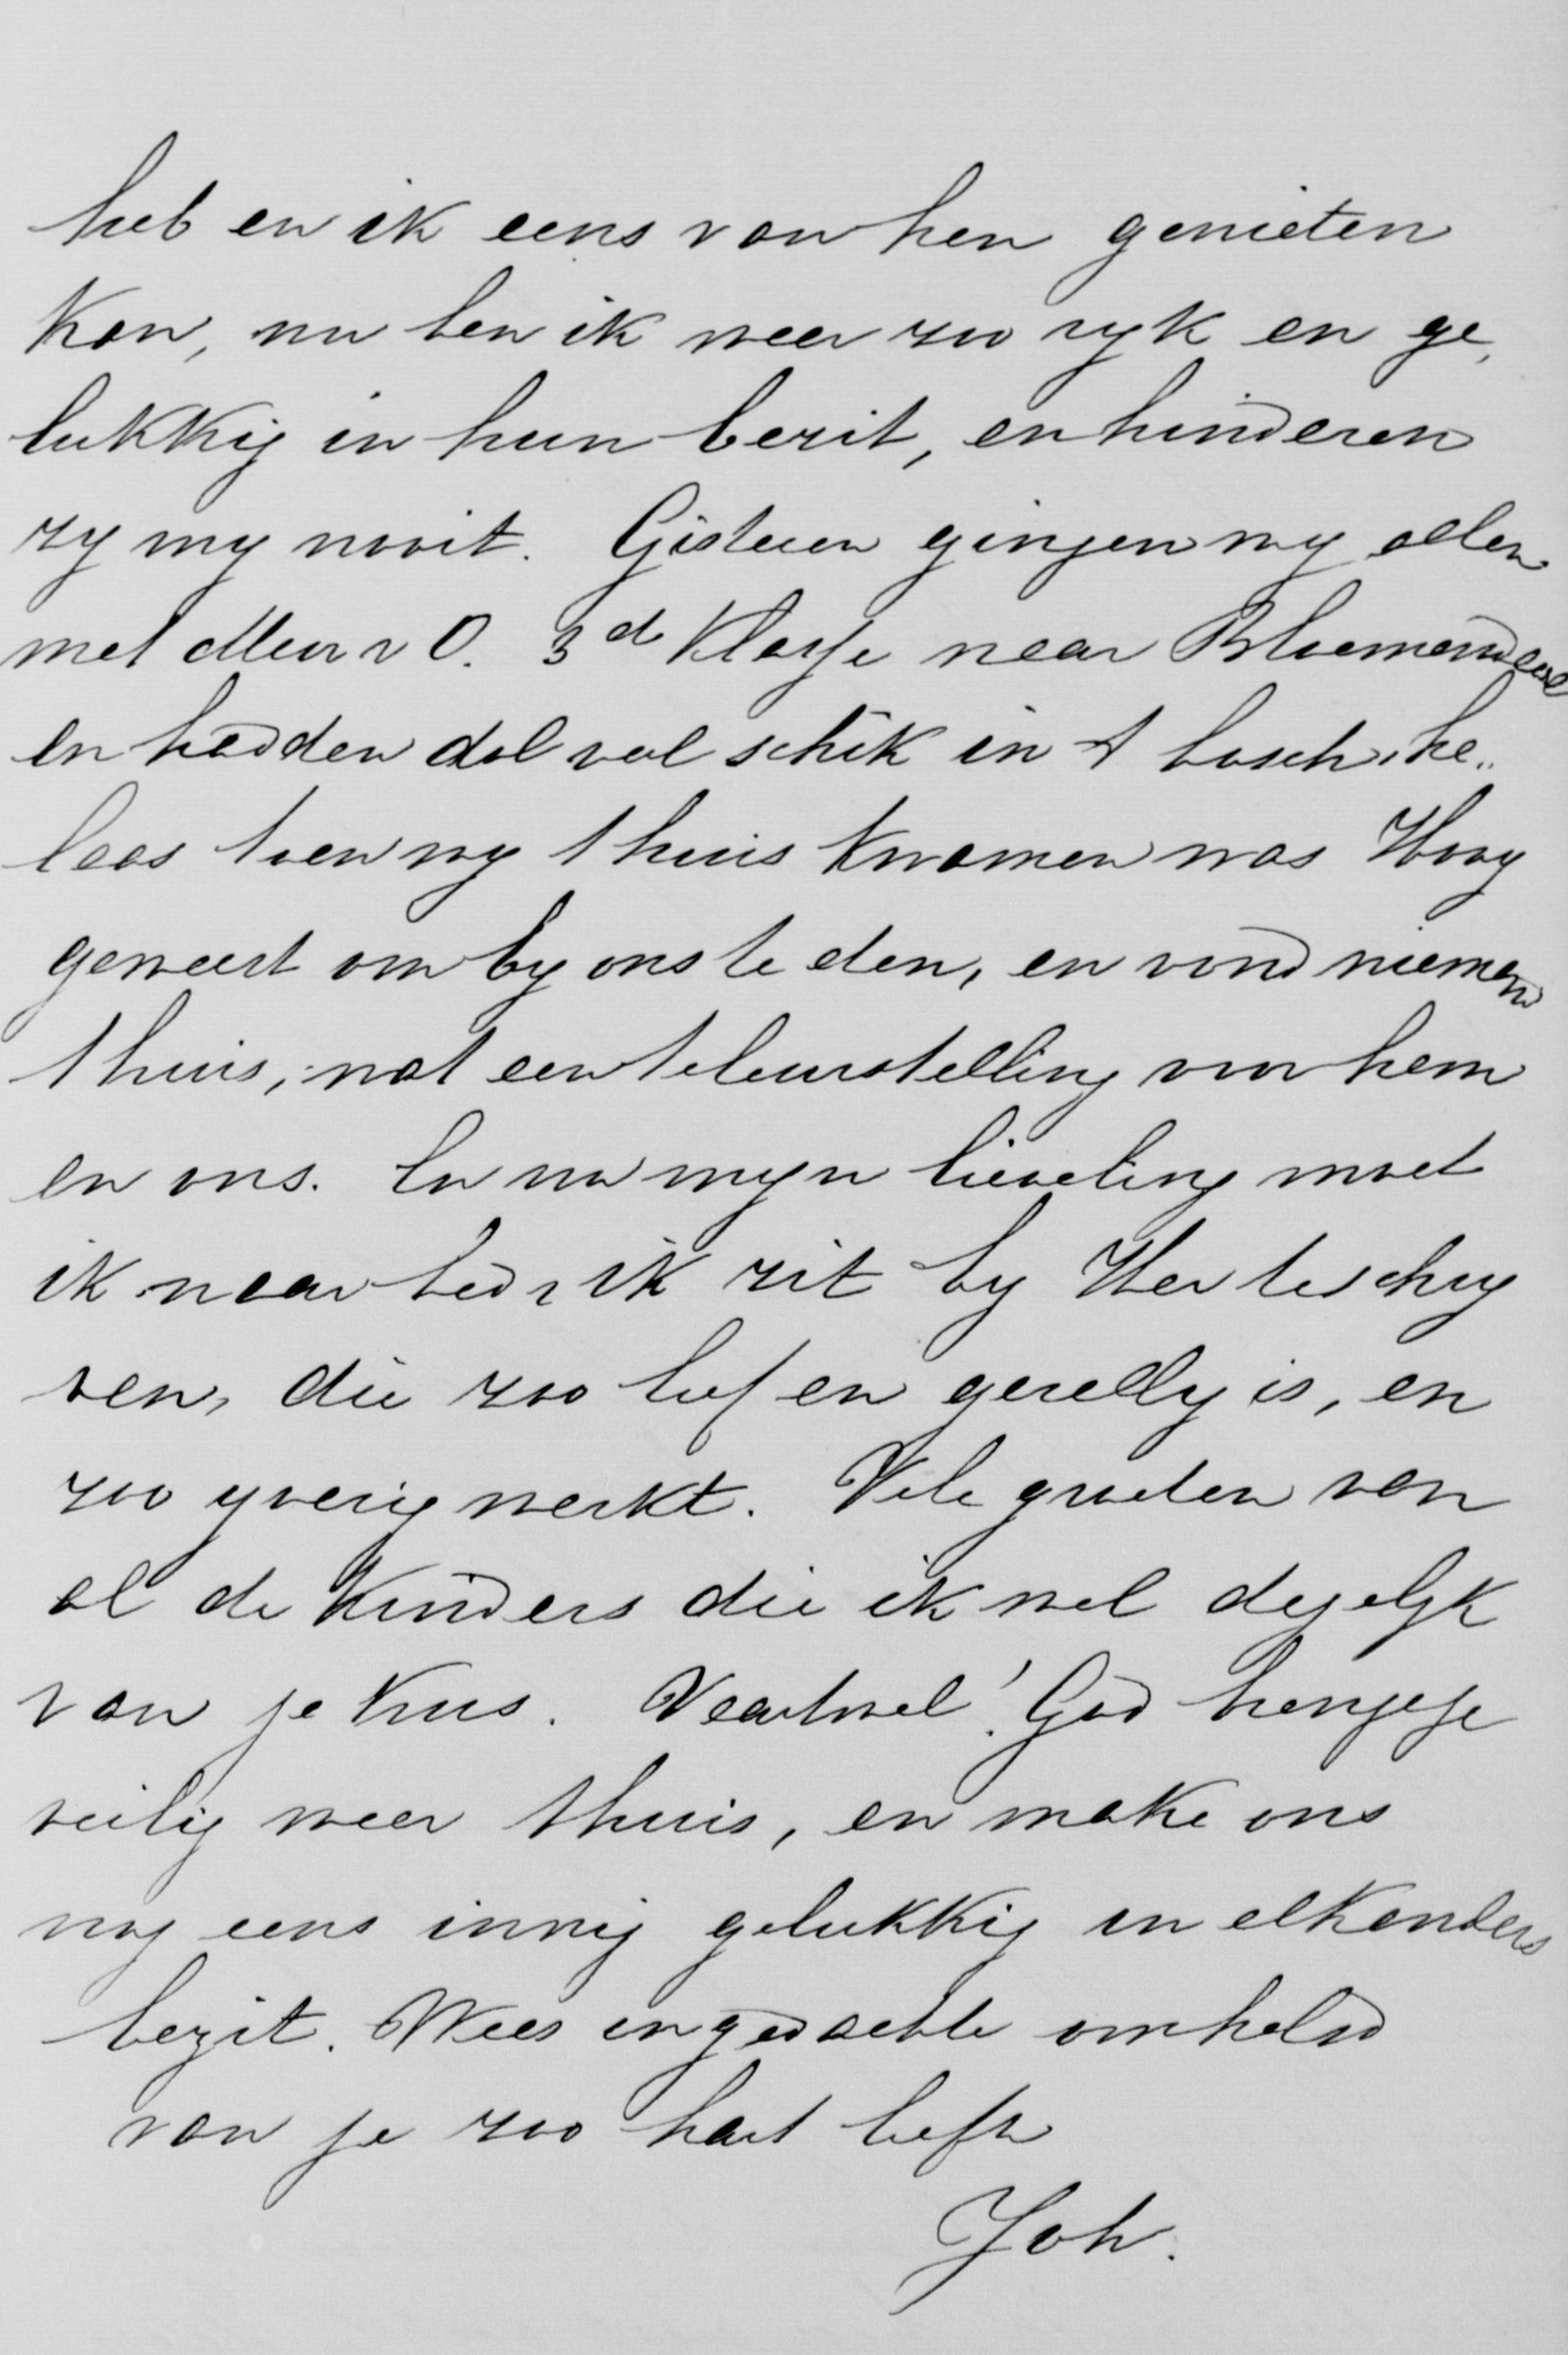 heb en ik eens van hen genieten
kan, nu ben ik weer zoo ryk en ge„
lukkig in hun bezit, en hinderen
zy my nooit. Gisteren gingen wy allen
met Mevr v O. 3d Klasse naar Bloemendaal
en hadden dol veel schik in 't bosch, he„
laas toen wy thuis kwamen was Hovy
geweest om by ons te eten, en vond niemand
thuis, wat een teleurstelling voor hem
en ons. En nu myn lieveling moet
ik naar bed, ik zit by Her te schry
ven, die zoo lief en gezellig is, en
zoo yverig werkt. Vele groeten van
al de Kinders die ik wel degelyk
van je kus. Vaarwel! God brenge je
veilig weer thuis, en make ons
nog eens innig gelukkig in elkanders
bezit. Wees in gedachte omhelsd
van je zoo hart liefh
Joh.